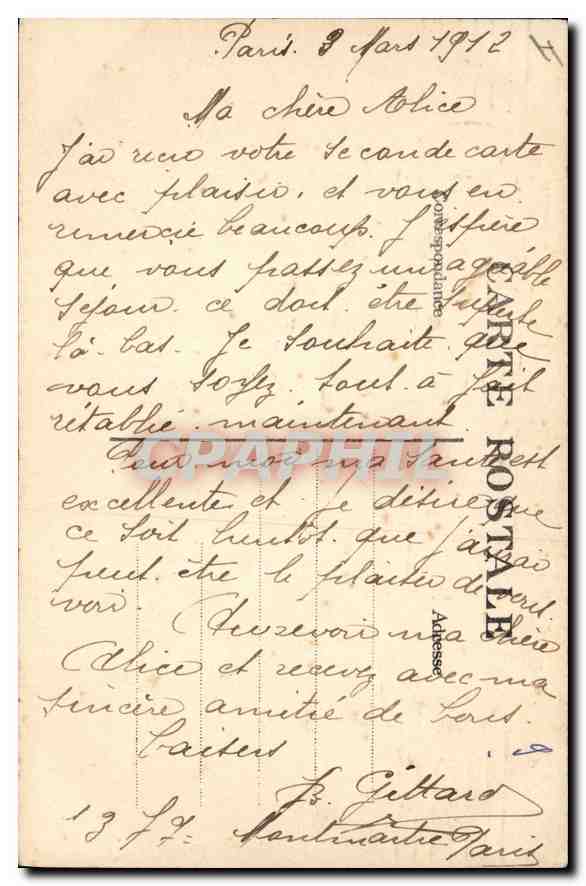 Paris. 3 Mars 1912
Ma chère Alice
J'ai reçu votre seconde carte
avec plaisir, et vous en
remercie beaucoup. J'espère
que vous passez un agréable
séjour. ce doit être superbe
là-bas. Je souhaite que
vous soyez tout à fait
rétablie maintenant.
Pour moi ma santé est
excellente et je désire que
ce soit bientôt que j'aurai
peut être le plaisir de vous
voir. Au revoir ma chère
Alice et recevez avec ma
sincère amitié de bons
baisers
Gillard
13 Montmartre Paris
CARTE POSTALE
Correspondance
Adresse
CPARHIL